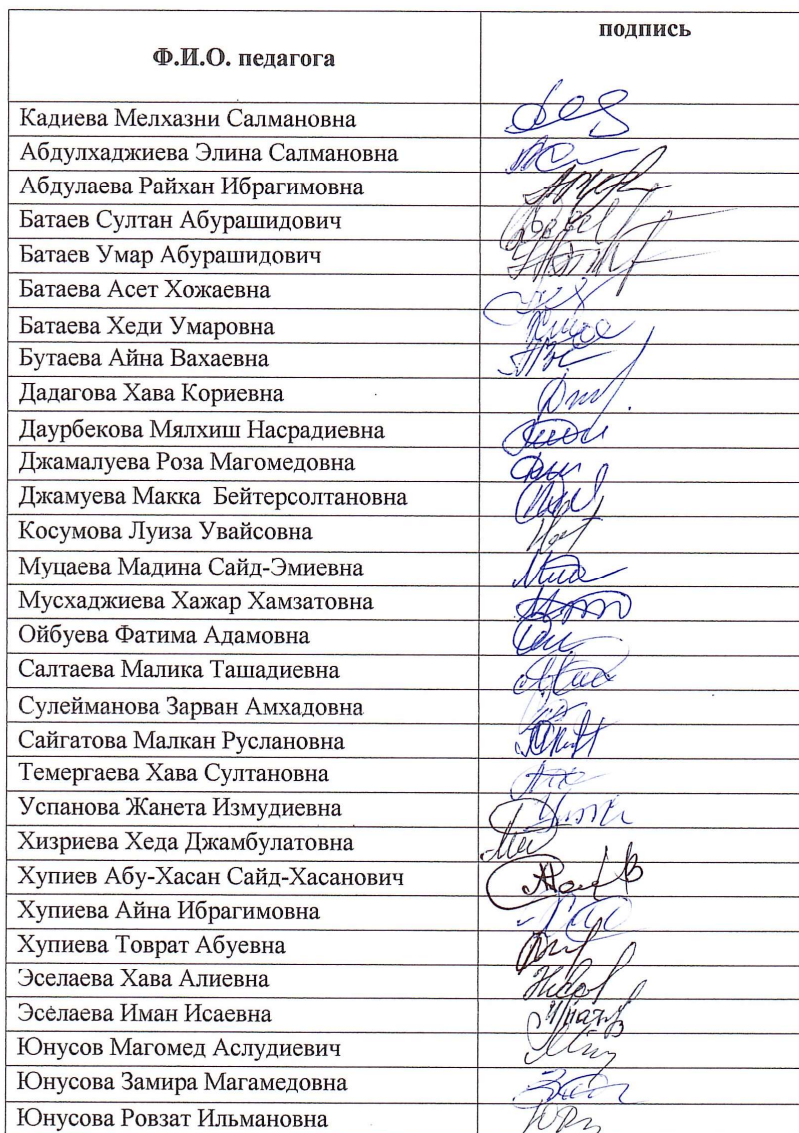 Ф.И.О. педагога подпись
Кадиева Мелхазни Салмановна
Абдулхаджиева Элина Салмановна
Абдулаева Райхан Ибрагимовна
Батаев Султан Абурашидович
Батаев Умар Абурашидович
Батаева Асет Хожаевна
Батаева Хеди Умаровна
Бутаева Айна Вахаевна
Дадагова Хава Кориевна
Даурбекова Мялхиш Насрадиевна
Джамалуева Роза Магомедовна
Джамуева Макка Бейтерсолтановна
Косумова Луиза Увайсовна
Муцаева Мадина Сайд-Эмиевна
Мусхаджиева Хажар Хамзатовна
Ойбуева Фатима Адамовна
Салтаева Малика Ташадиевна
Сулейманова Зарван Амхадовна
Сайгатова Малкан Руслановна
Темергаева Хава Султановна
Успанова Жанета Измудиевна
Хизриева Хеда Джамбулатовна
Хупиев Абу-Хасан Сайд-Хасанович
Хупиева Айна Ибрагимовна
Хупиева Товрат Абуевна
Эселаева Хава Алиевна
Эселаева Иман Исаевна
Юнусов Магомед Аслудиевич
Юнусова Замира Магамедовна
Юнусова Ровзат Ильмановна